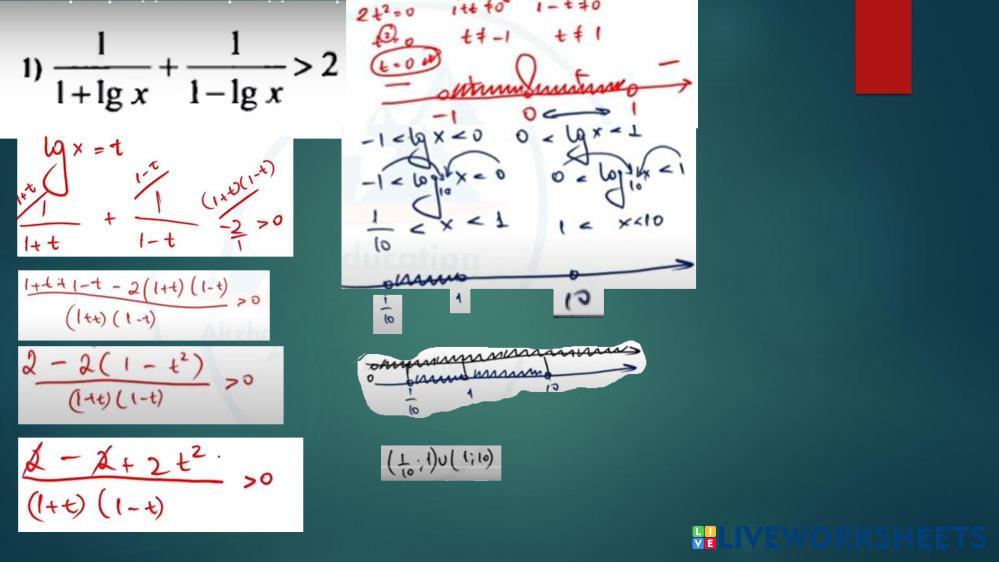 1) 1/(1+lg x) + 1/(1−lg x) > 2
lg x = t
1+t/ 1/(1+t) + 1−t/ 1/(1−t) (1+t)(1−t)/ −2/1 >0
(1+t+1−t − 2(1+t)(1−t))/((1+t)(1−t)) >0
(2 − 2(1 − t²))/((1+t)(1−t)) >0
(2 − 2 + 2t²)/((1+t)(1−t)) >0
2t²=0 1+t≠0 1−t≠0
t≠−1 t≠1
t=0
− + −
−1 0 1
−1 < lg x < 0 0 < lg x < 1
−1 < log₁₀ x < 0 0 < log₁₀ x < 1
1/10 < x < 1 1 < x < 10
ducation
1/10 1 10
0 1/10 1 10
(1/10; 1)∪(1; 10)
LIVE LIVEWORKSHEETS